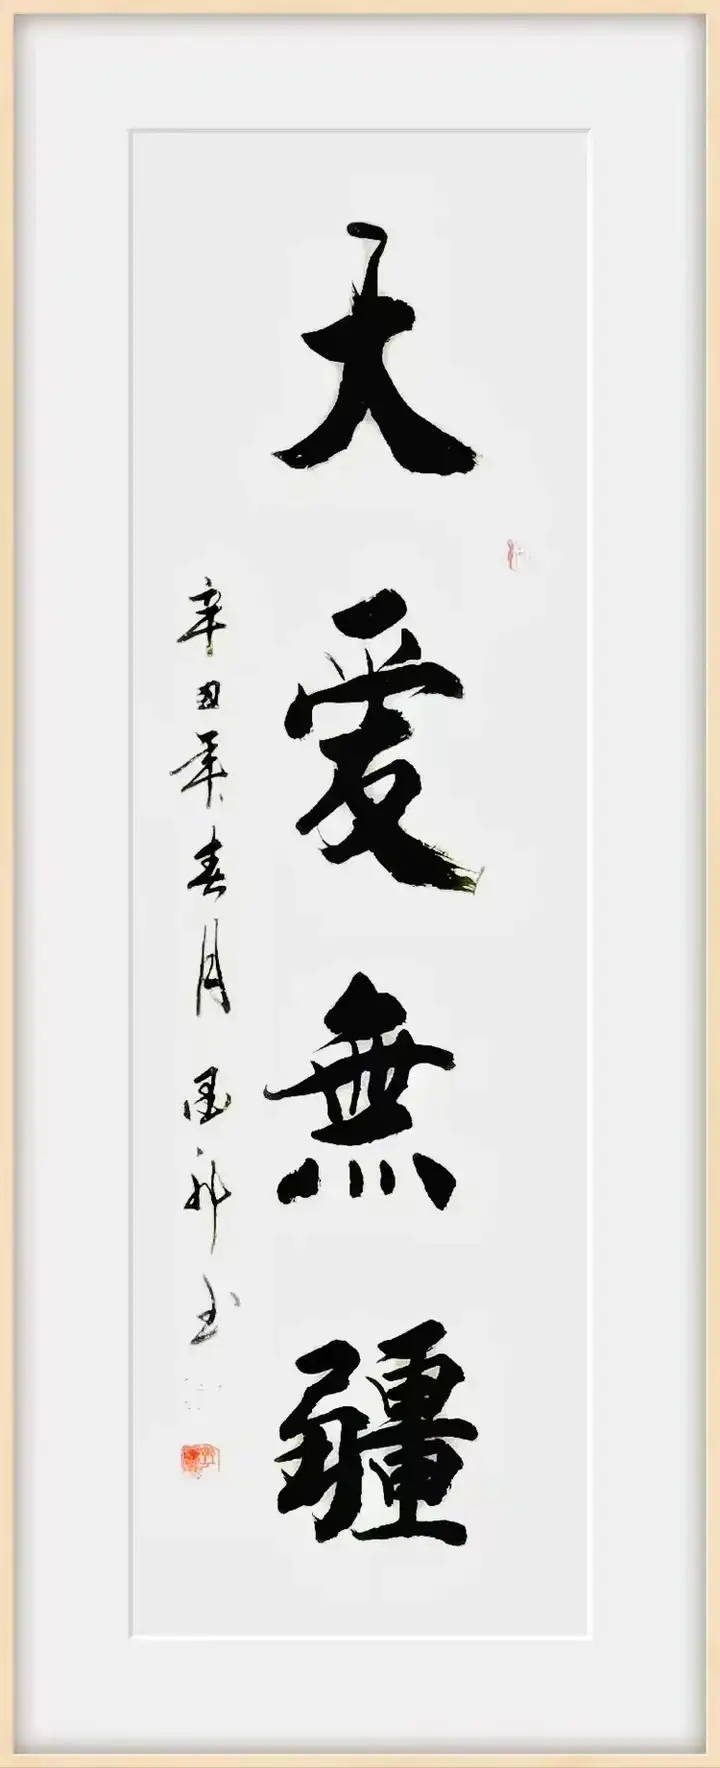 大愛無疆
辛丑年春月